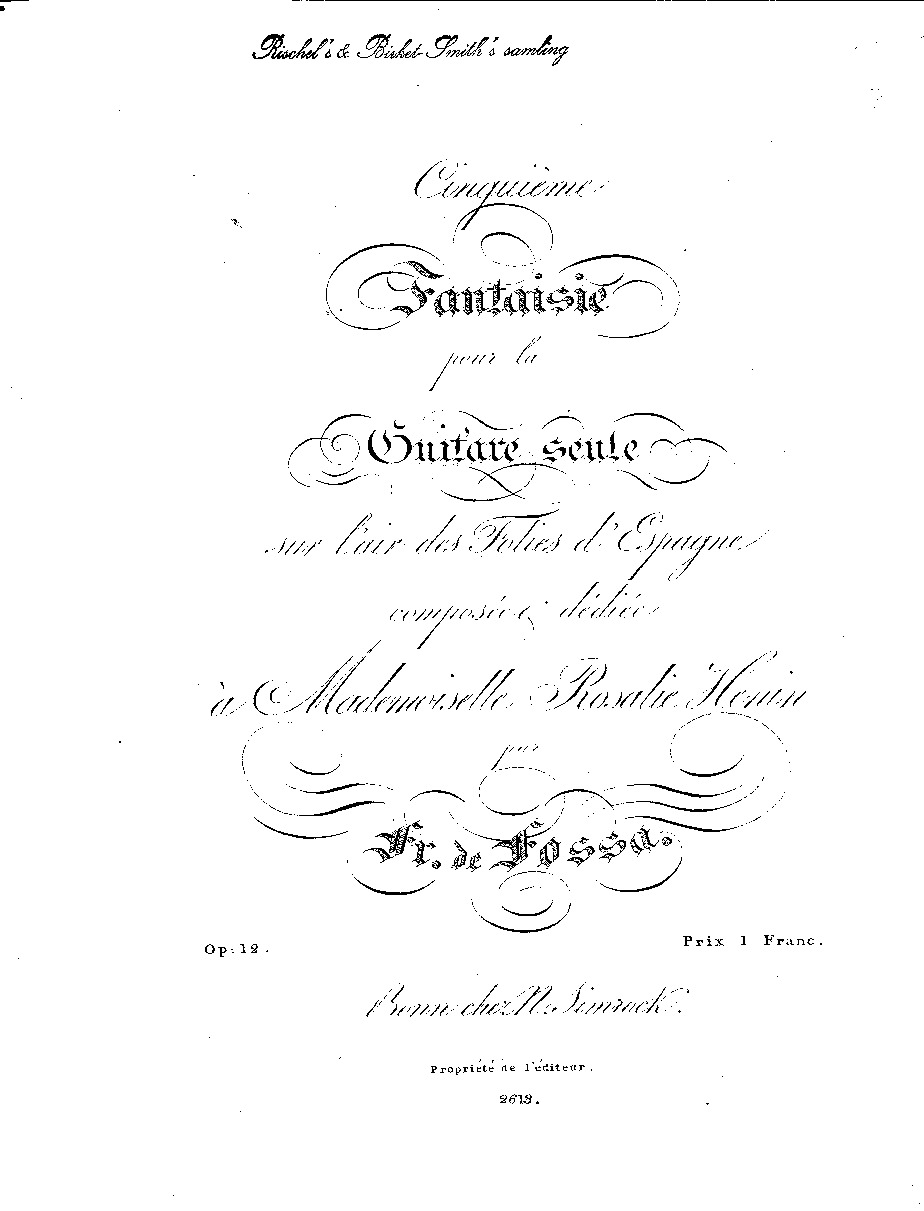 Rischel's & Birket-Smith's samling
Cinquième
Fantaisie
pour la
Guitare seule
sur l'air des Folies d'Espagne
composée & dédiée
à Mademoiselle Rosalie Henin
par
Fr. de Fossa.
Op: 12.
Prix 1 Franc.
Bonn chez N. Simrock.
Propriété de l'éditeur.
2613.